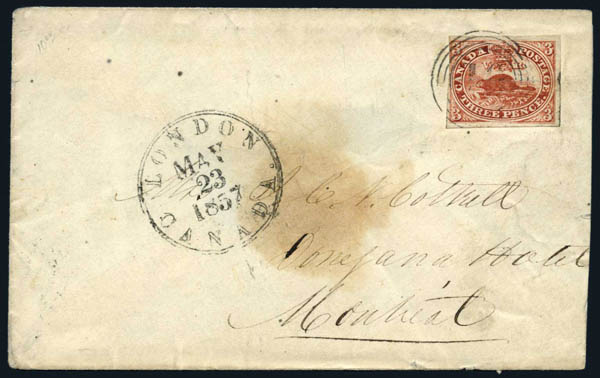 3 CANADA POSTAGE 3
3 THREE PENCE 3
LONDON
MAY
23
1857
CANADA
Donegana Hotel
Montréal